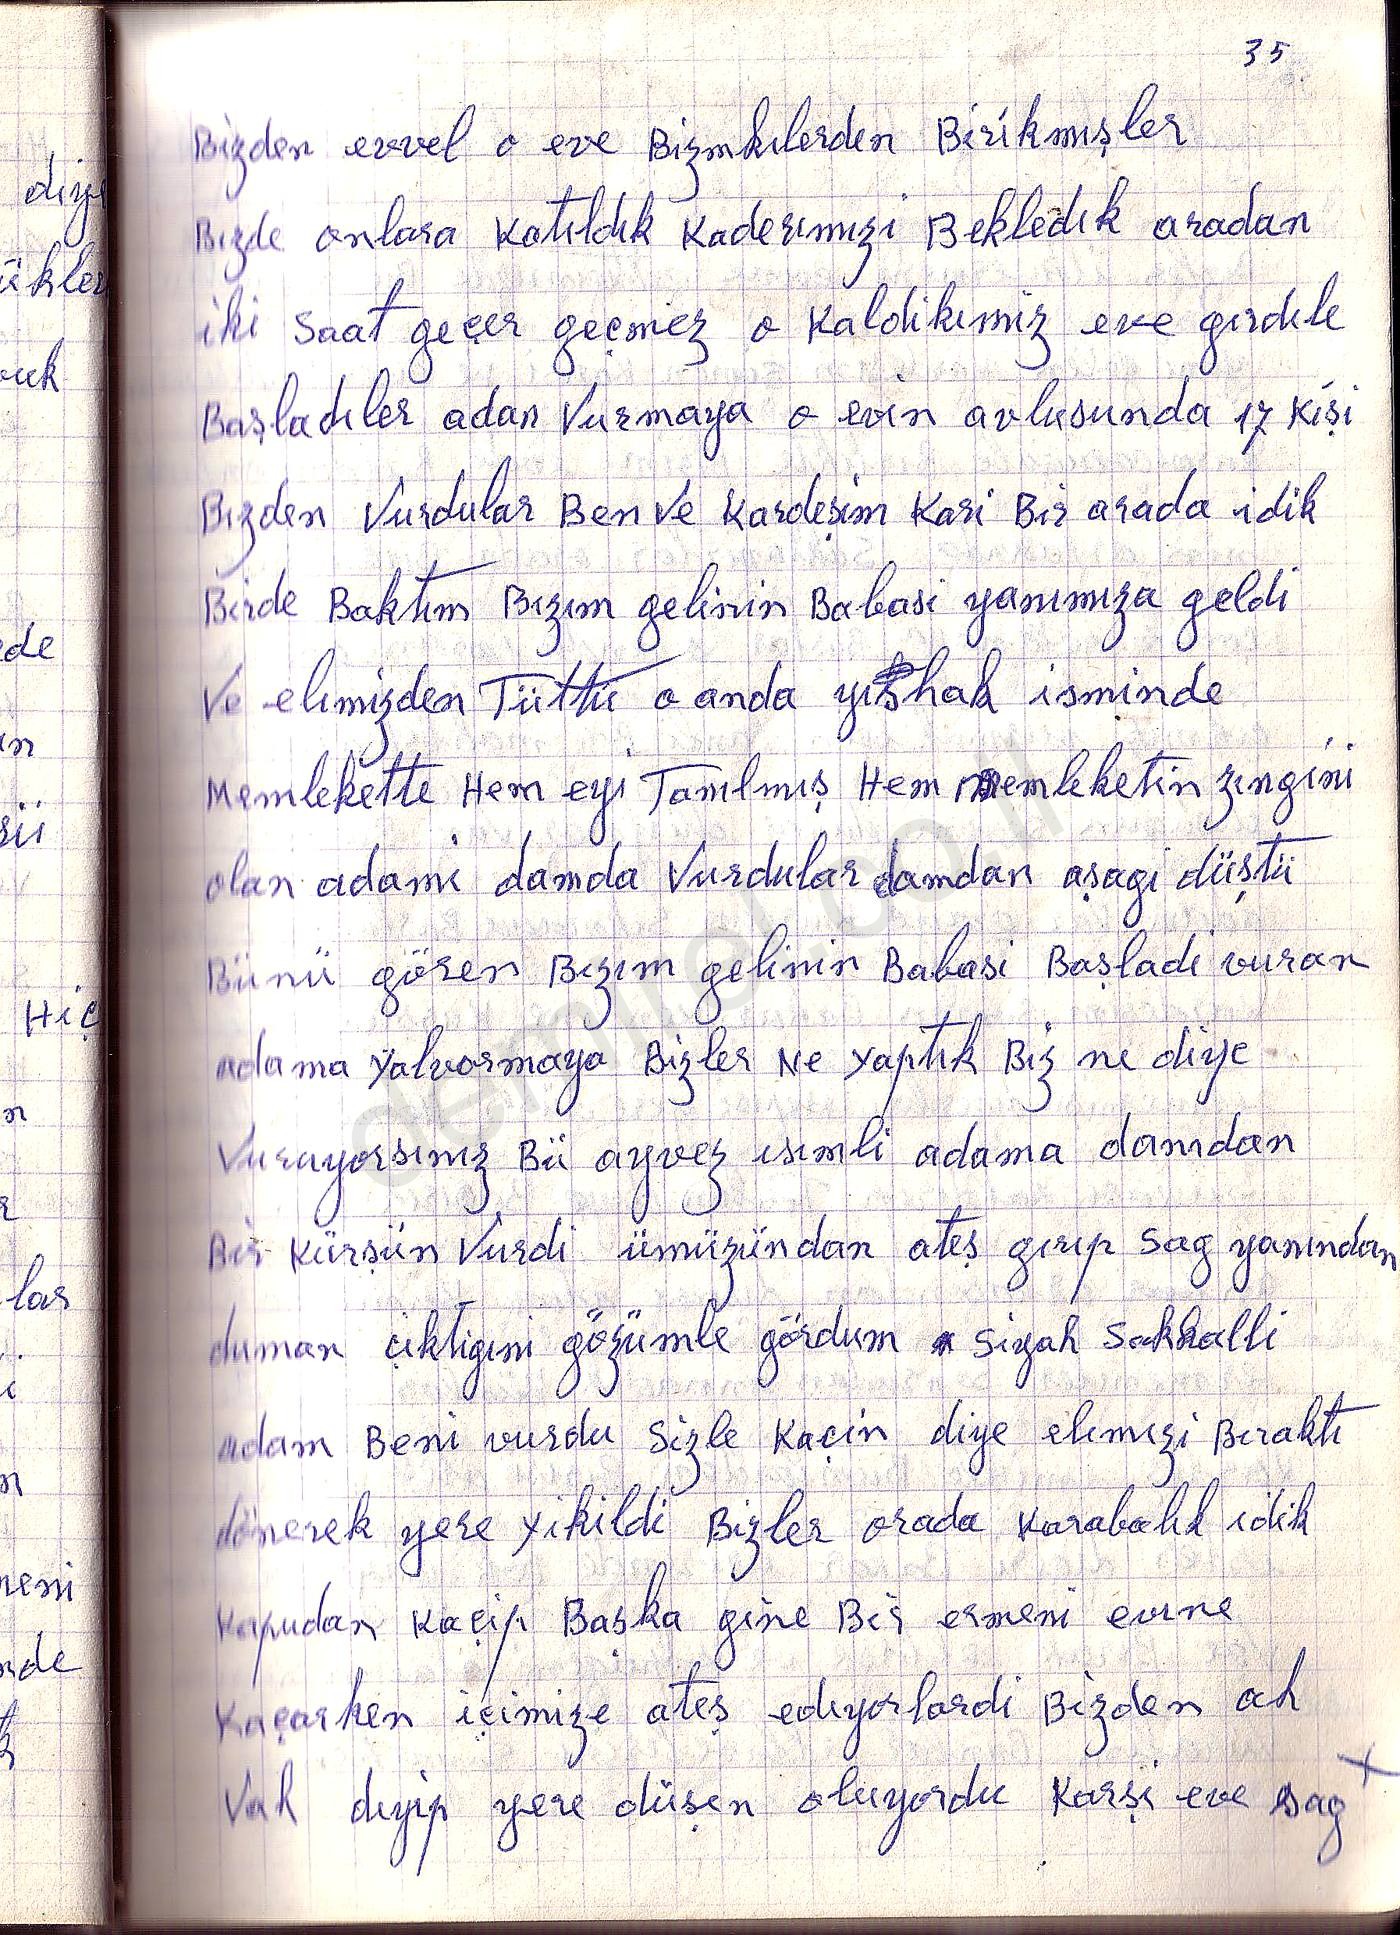 35
Bizden evvel o eve Bizmkılerden Birikmışler
Bızde onlara Katıldık Kaderımızi Bekledık aradan
iki Saat geçer geçmez o Kaldikımiz eve gırdıle
Başladıler adan Vurmaya o evin avlusunda 17 Kişi
Bızden Vurdular Ben Ve Kardeşim Kari Bir arada idik
Birde Baktım Bızım gelinin Babasi yanımıza geldi
Ve elımizden Tüttü o anda yıshak isminde
Memlekette Hem eyi Tanılmış Hem memleketin zıngini
olan adami damda Vurdular damdan aşagi düştü
Bünü gören Bızım gelinin Babasi Başladi vuran
adama Yalvarmaya Bizler Ne Yaptık Biz ne diye
Vuruyorsınız Bü ayvez ısımli adama damdan
Bir Kürşün Vurdi ümüzündan ateş gırıp Sag yanından
duman çiktigıni gözümle gördum Siyah Sakkalli
adam Beni vurdu Sizle Kaçin diye elımızi Bıraktı
dönerek yere Yikildi Bizler orada Karabalık idik
Kapudan Kaçip Başka gine Bir ermeni evıne
Kaçarken içimize ateş edıyorlardi Bizden ah
Vah dıyip yere düşen oluyordu Karşi eve sag
diye
ükler
cuk
ede
ın
sü
Hiç
n
r
lar
i
n
reni
nde
k
demirel.co.il